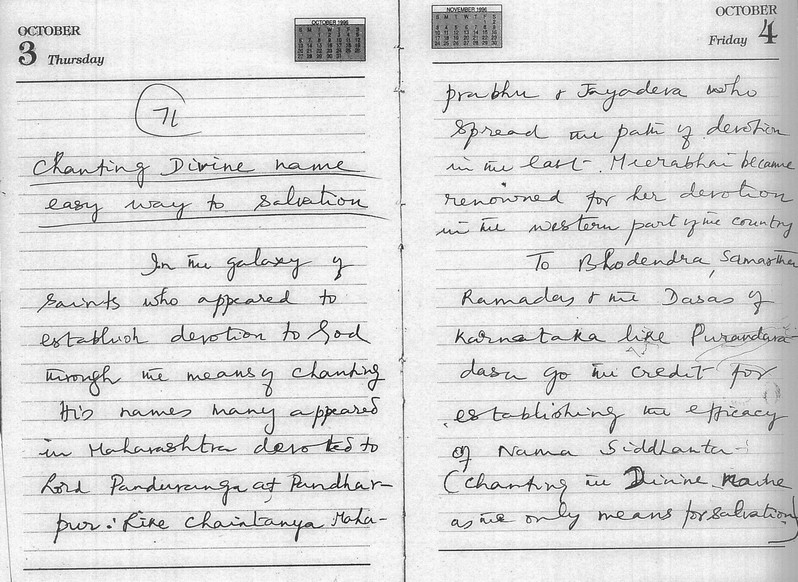 OCTOBER
3 Thursday
OCTOBER 1996
71
Chanting Divine name
easy way to salvation
In the galaxy of
saints who appeared to
establish devotion to God
through the means of chanting
His names many appeared
in Maharashtra devoted to
Lord Panduranga at Pandhar-
pur. Like Chaintanya Maha-
NOVEMBER 1996
OCTOBER
Friday 4
prabhu & Jayadeva who
spread the path of devotion
in the east. Meerabhai became
renowned for her devotion
in the western part of the country
To Bhodendra, Samartha
Ramadas & the Dasas of
Karnataka like Purandara-
dasa go the credit for
establishing the efficacy
of Nama Siddhanta -
(Chanting the Divine name
as the only means for salvation)